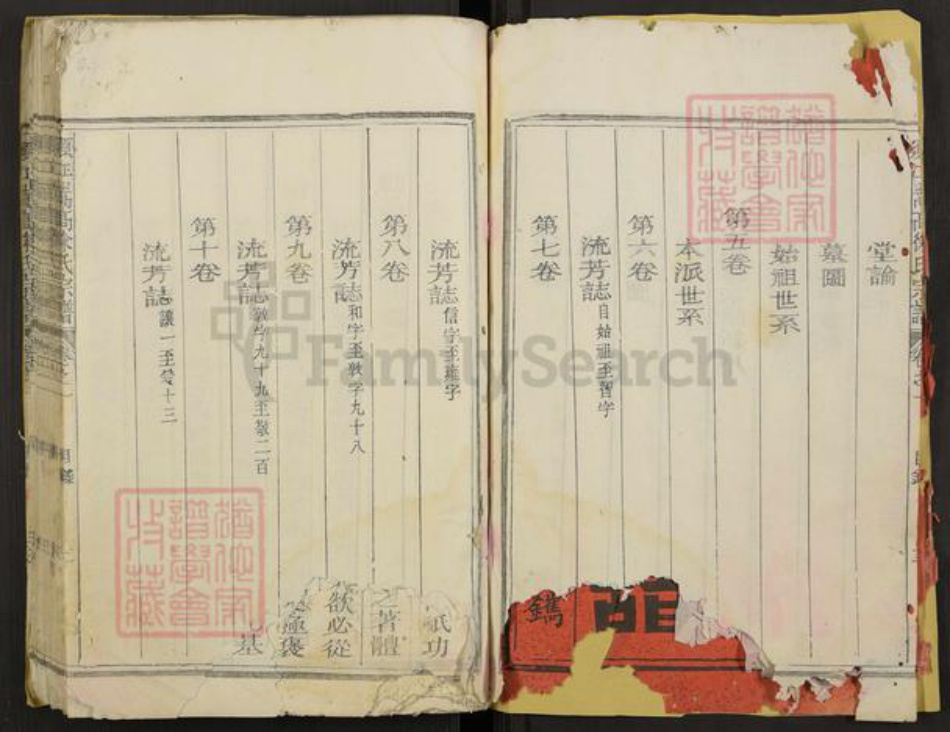 堂諭
墓圖
始祖世系
第五卷
本派世系
第六卷
流芳誌自始祖至智字
第七卷
流芳誌信字至雍字
第八卷
流芳誌和字至敦字九十八
第九卷
流芳誌敦字九十九至敬二百
第十卷
流芳誌讓一至
十三
鐫
祇功
著體
欲必從
褒
基
FamilySearch